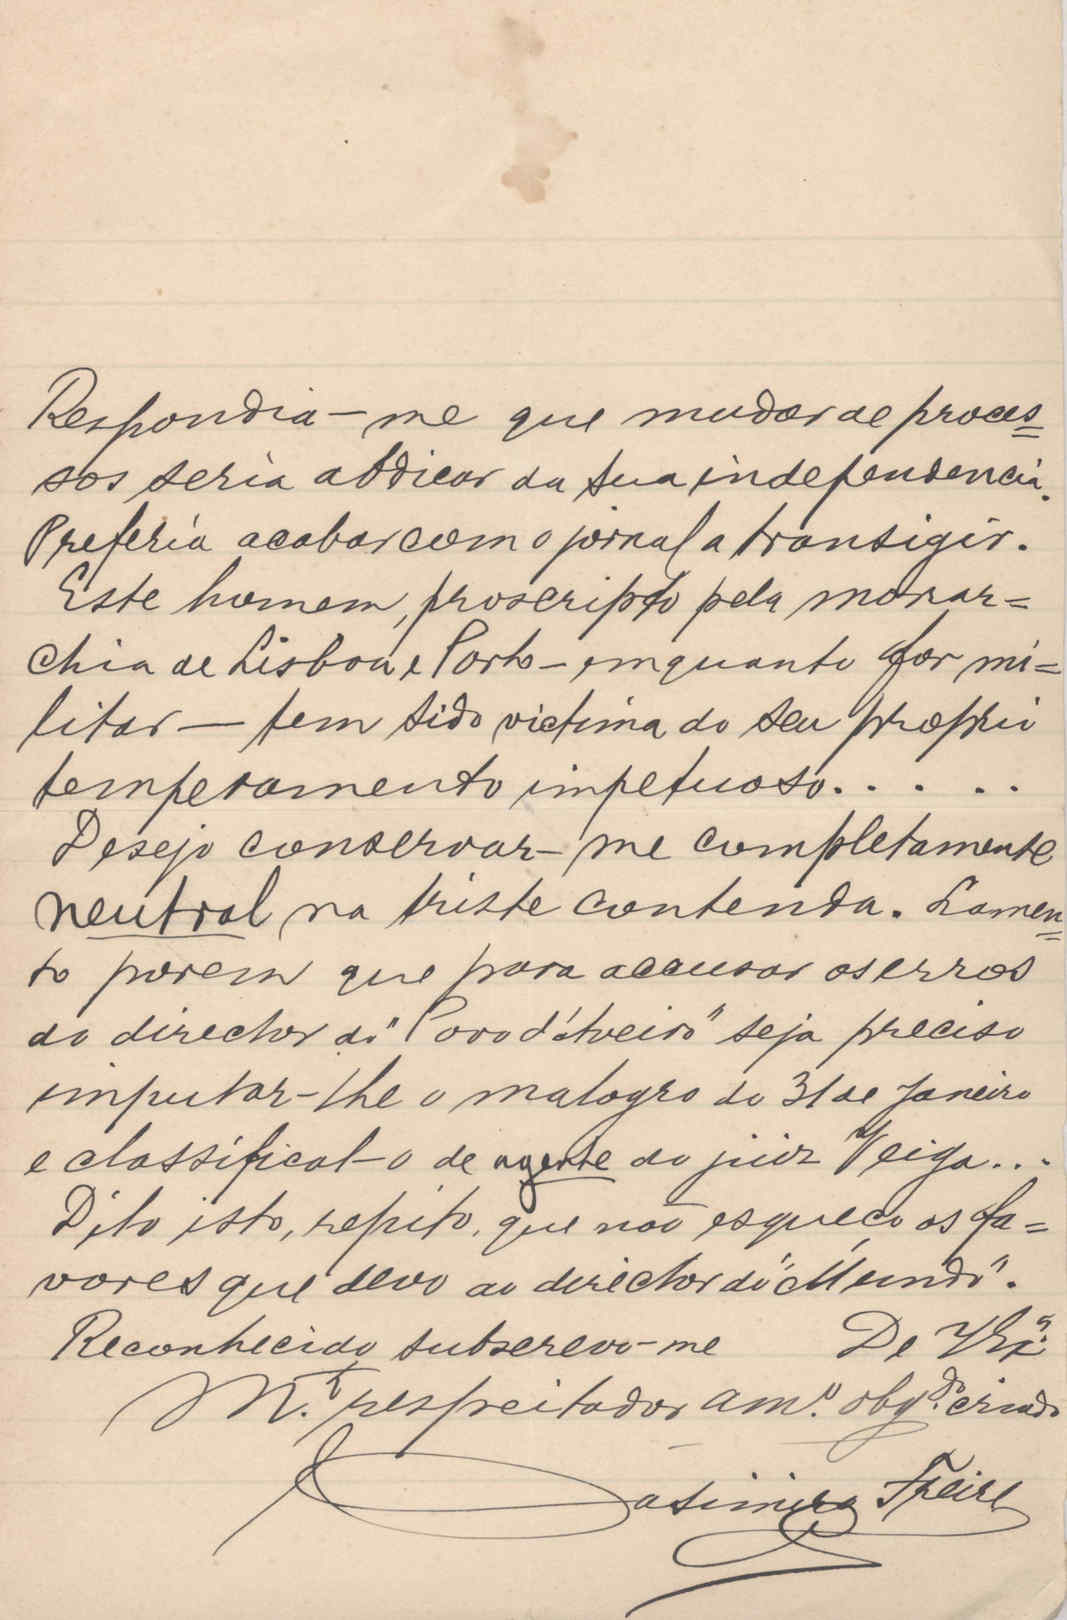 Respondia-me que mudar de proces=
sos seria abdicar da sua independencia.
Preferia acabar com o jornal a transigir.
Este homem, proscripto pela monar=
chia de Lisboa e Porto - emquanto for mi=
litar — tem sido victima do seu proprio
temperamento impetuoso. . . . .
Desejo conservar-me completamente
neutral na triste contenda. Lamen=
to porem que para accusar os erros
do director do "Povo d'Aveiro" seja preciso
imputar-lhe o malogro do 31 de Janeiro
e classifical-o de agente do juiz Veiga...
Dito isto, repito, que não esqueço os fa=
vores que devo ao director do "Mundo".
Reconhecido subscrevo-me De V. Ex.ª
M.to respeitador am.o obg.do criado
Casimiro Freire